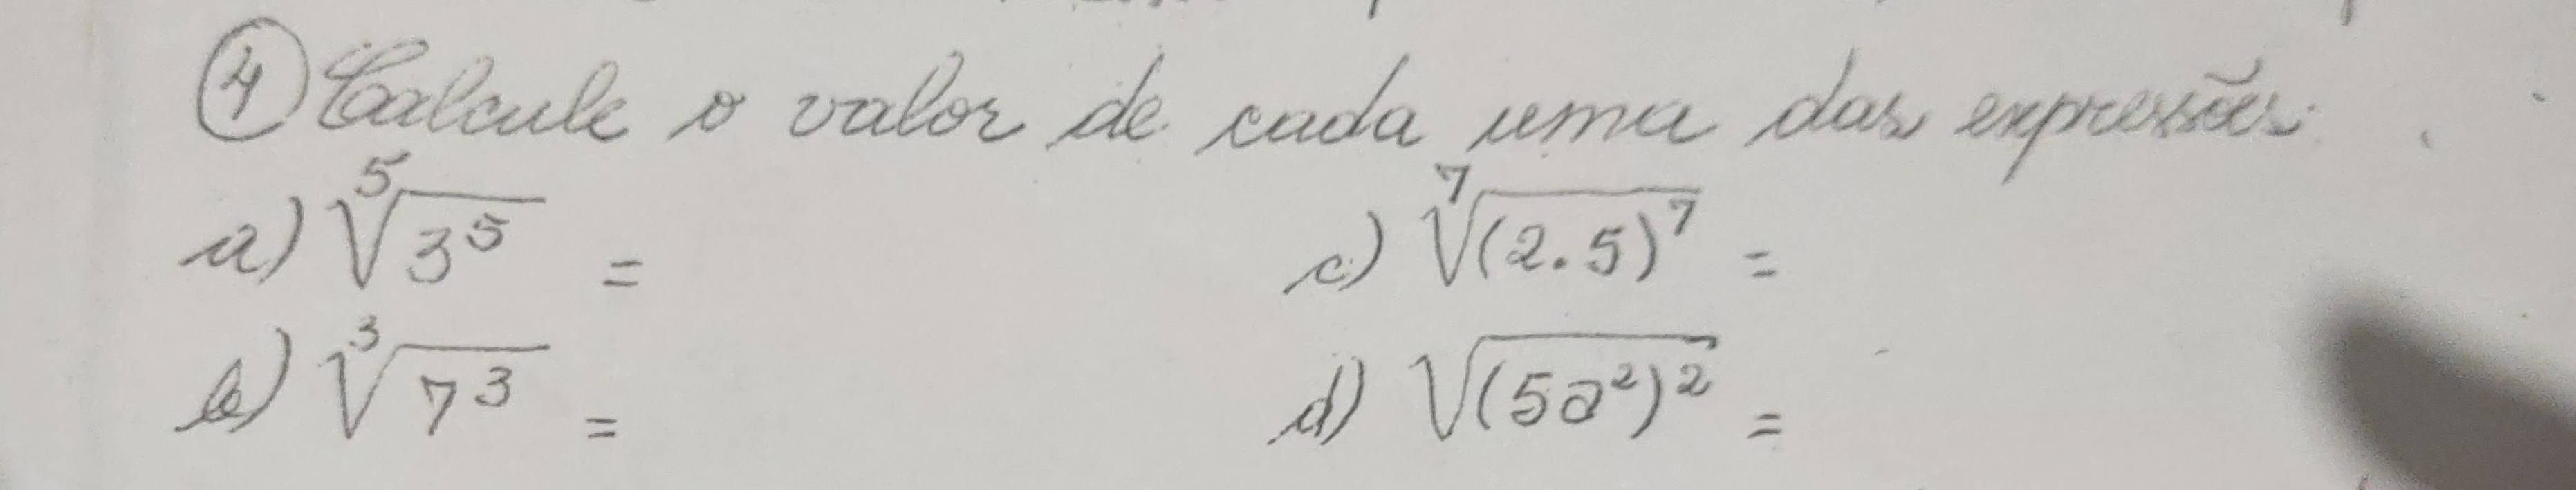 ④ Calcule o valor de cada uma das expressões.
a) ⁵√3⁵ = c) ⁷√(2.5)⁷ =
b) ³√7³ = d) √(5a²)² =